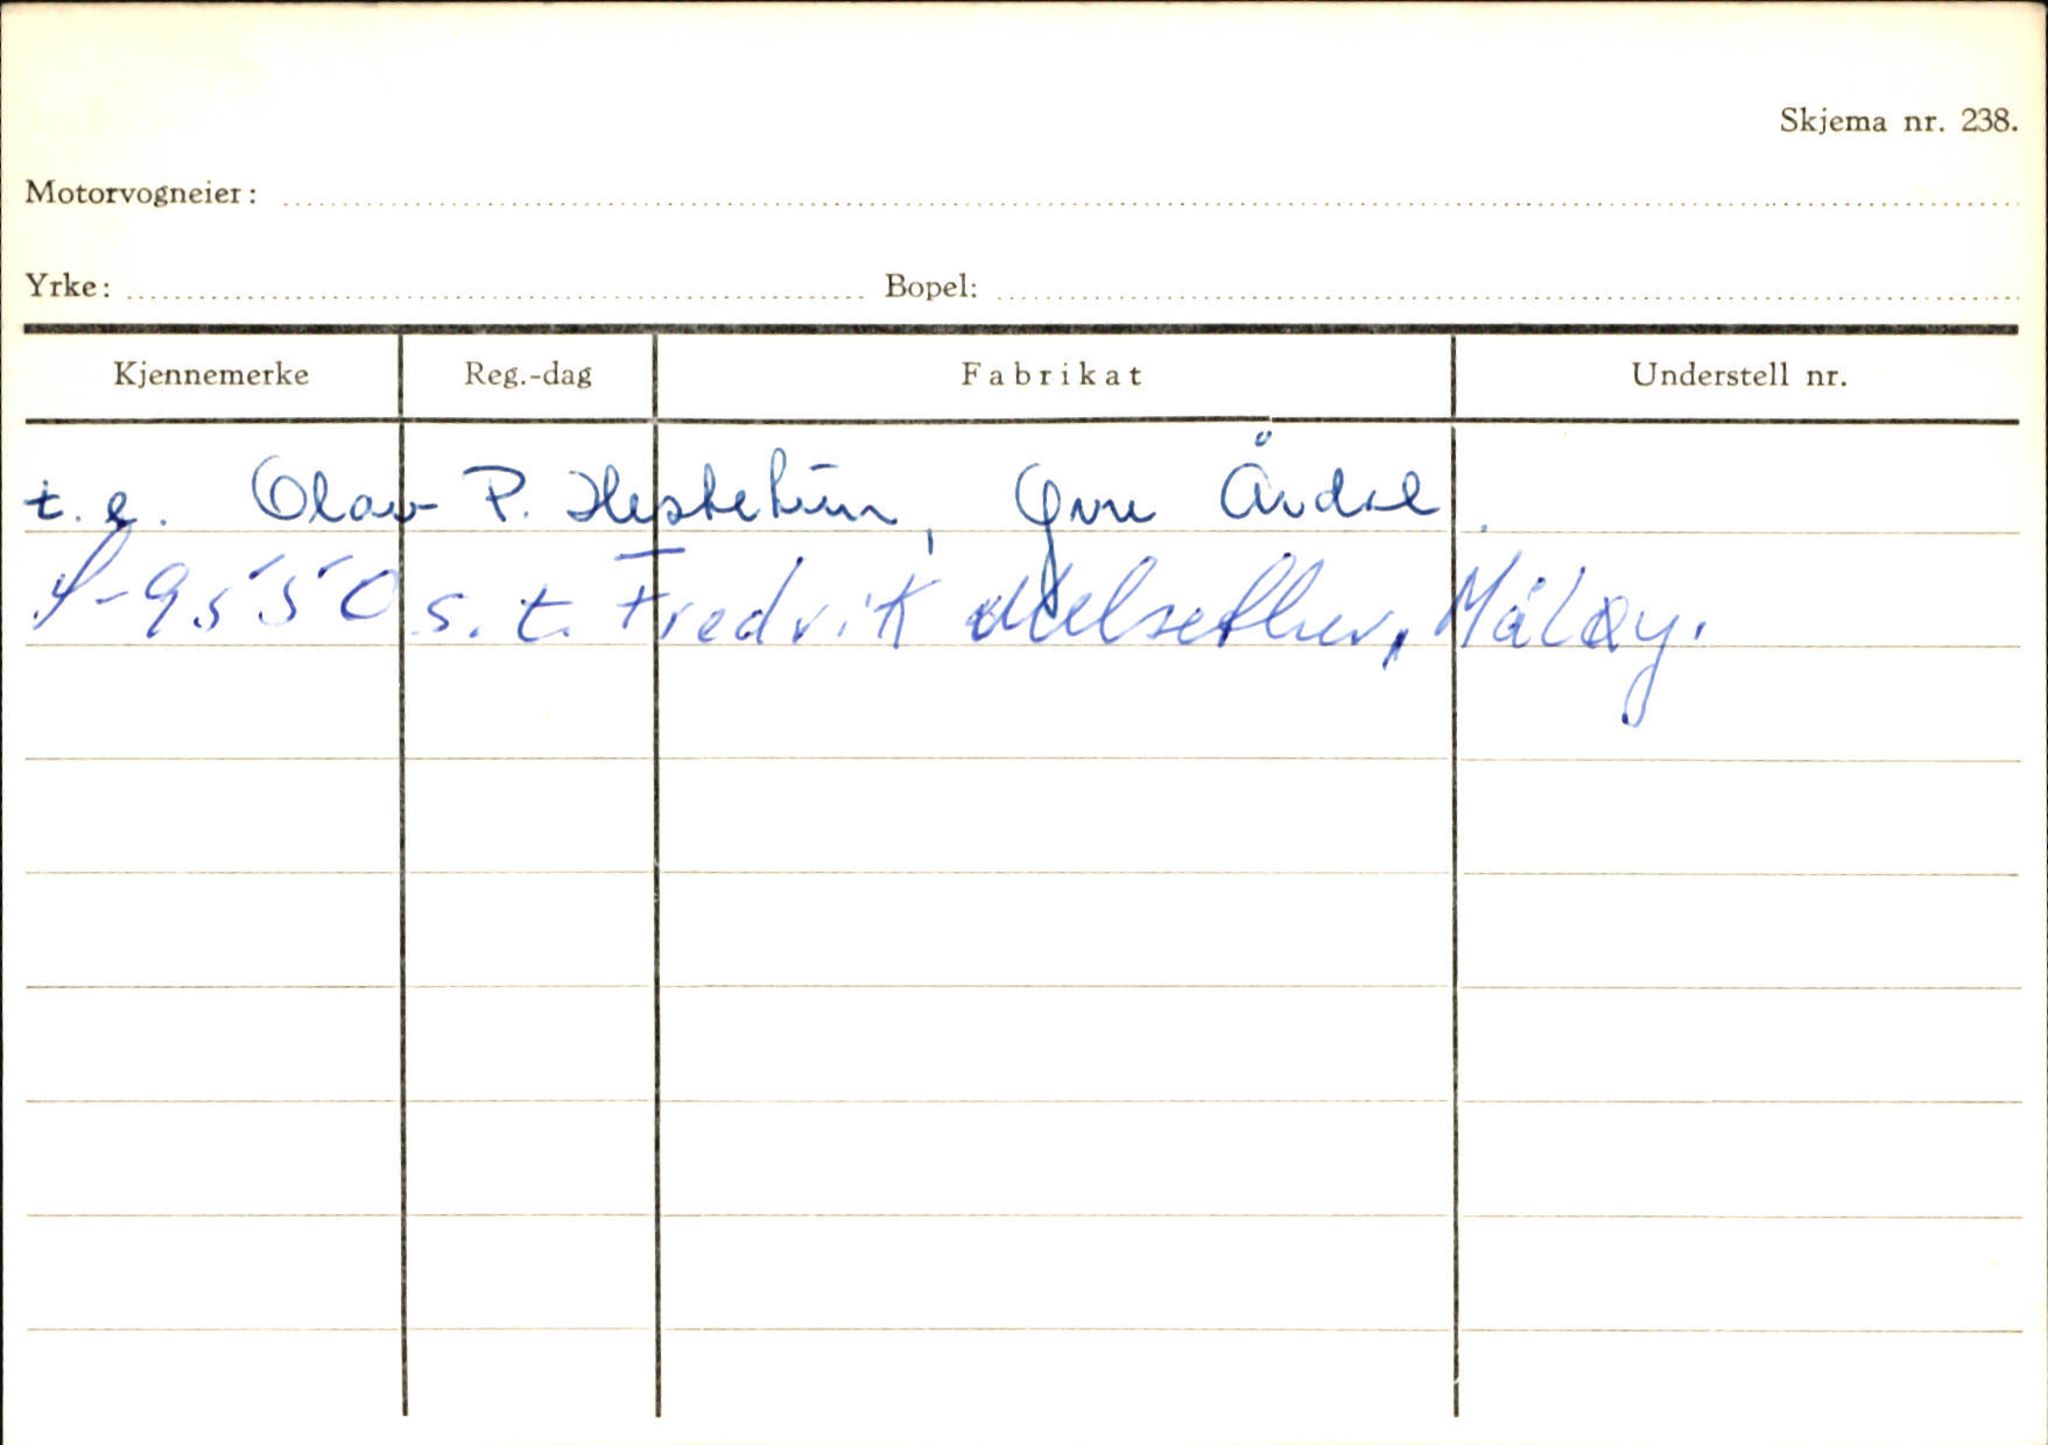 Skjema nr. 238.
Motorvogneier:
Yrke: Bopel:
Kjennemerke Reg.-dag Fabrikat Understell nr.
t.e. Olav P. Hestetun, Øvre Årdal.
S-9550 s.t. Fredrik Melsether, Måløy.